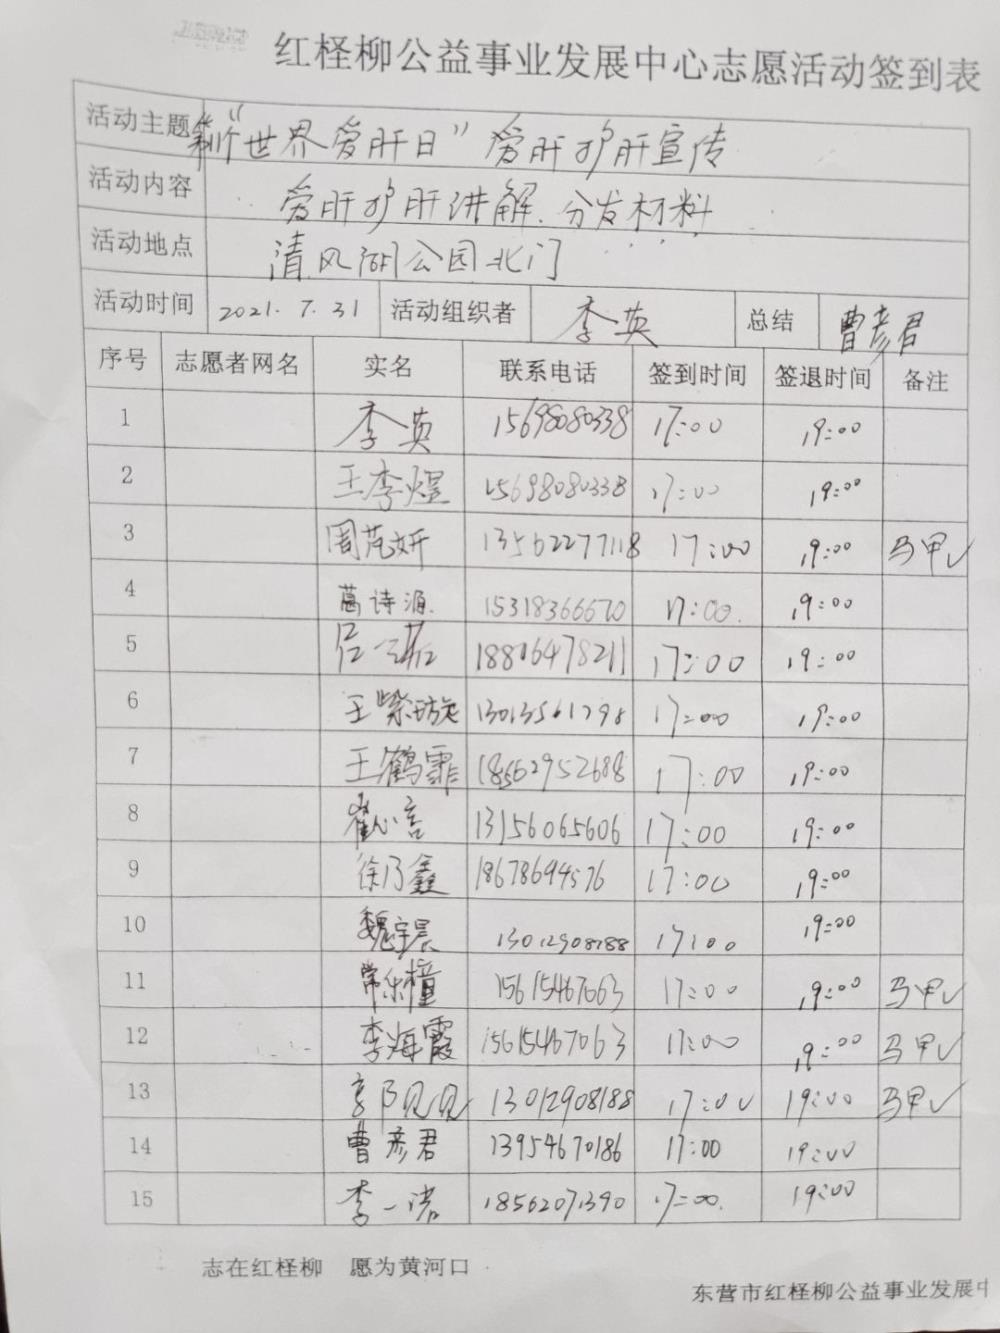 红柽柳公益事业发展中心志愿活动签到表
活动主题 “世界爱肝日”爱肝护肝宣传
活动内容 爱肝护肝讲解.分发材料
活动地点 清风湖公园北门
活动时间 2021.7.31 活动组织者 李英 总结 曹彦君
序号 志愿者网名 实名 联系电话 签到时间 签退时间 备注
1 李英 15698080338 17:00 19:00
2 王李煜 15698080338 17:00 19:00
3 周范妍 13562277118 17:00 19:00 马甲✓
4 葛诗源 15318366670 17:00 19:00
5 18806478211 17:00 19:00
6 王紫璇 13013561798 17:00 19:00
7 王鹤霏 18562952688 17:00 19:00
8 崔心言 13156065606 17:00 19:00
9 徐乃鑫 18678694576 17:00 19:00
10 魏宇晨 13012908188 17:00 19:00
11 常乐橦 15615467063 17:00 19:00 马甲✓
12 李海霞 15615467063 17:00 19:00 马甲✓
13 13012908188 17:00 19:00 马甲✓
14 曹彦君 13954670186 17:00 19:00
15 李一诺 18562071390 17:00 19:00
志在红柽柳 愿为黄河口
东营市红柽柳公益事业发展中